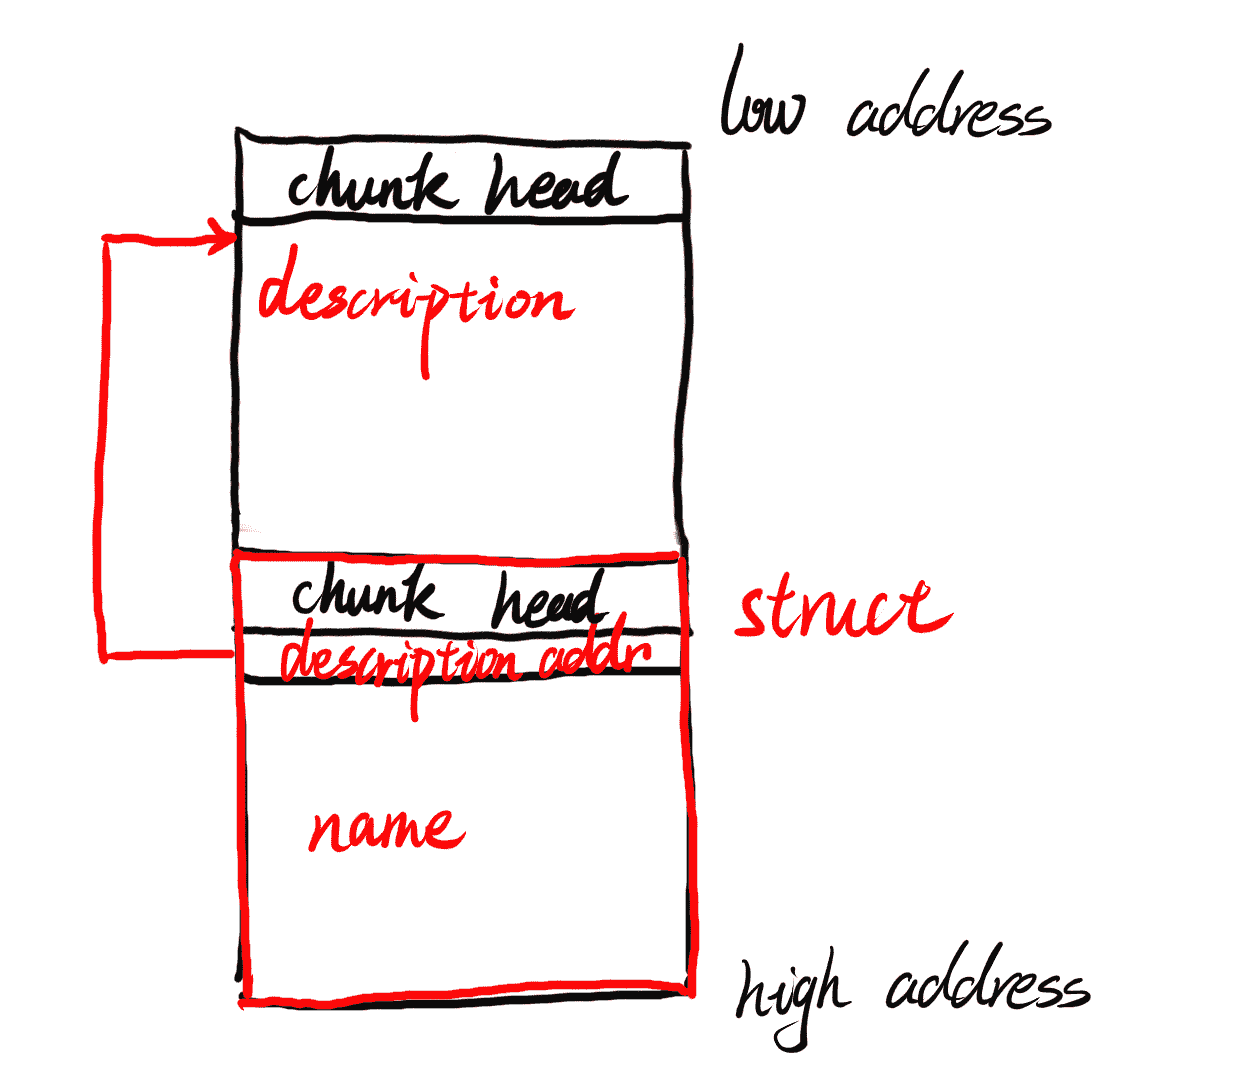 low address
chunk head
description
chunk head
struct
description addr
name
high address